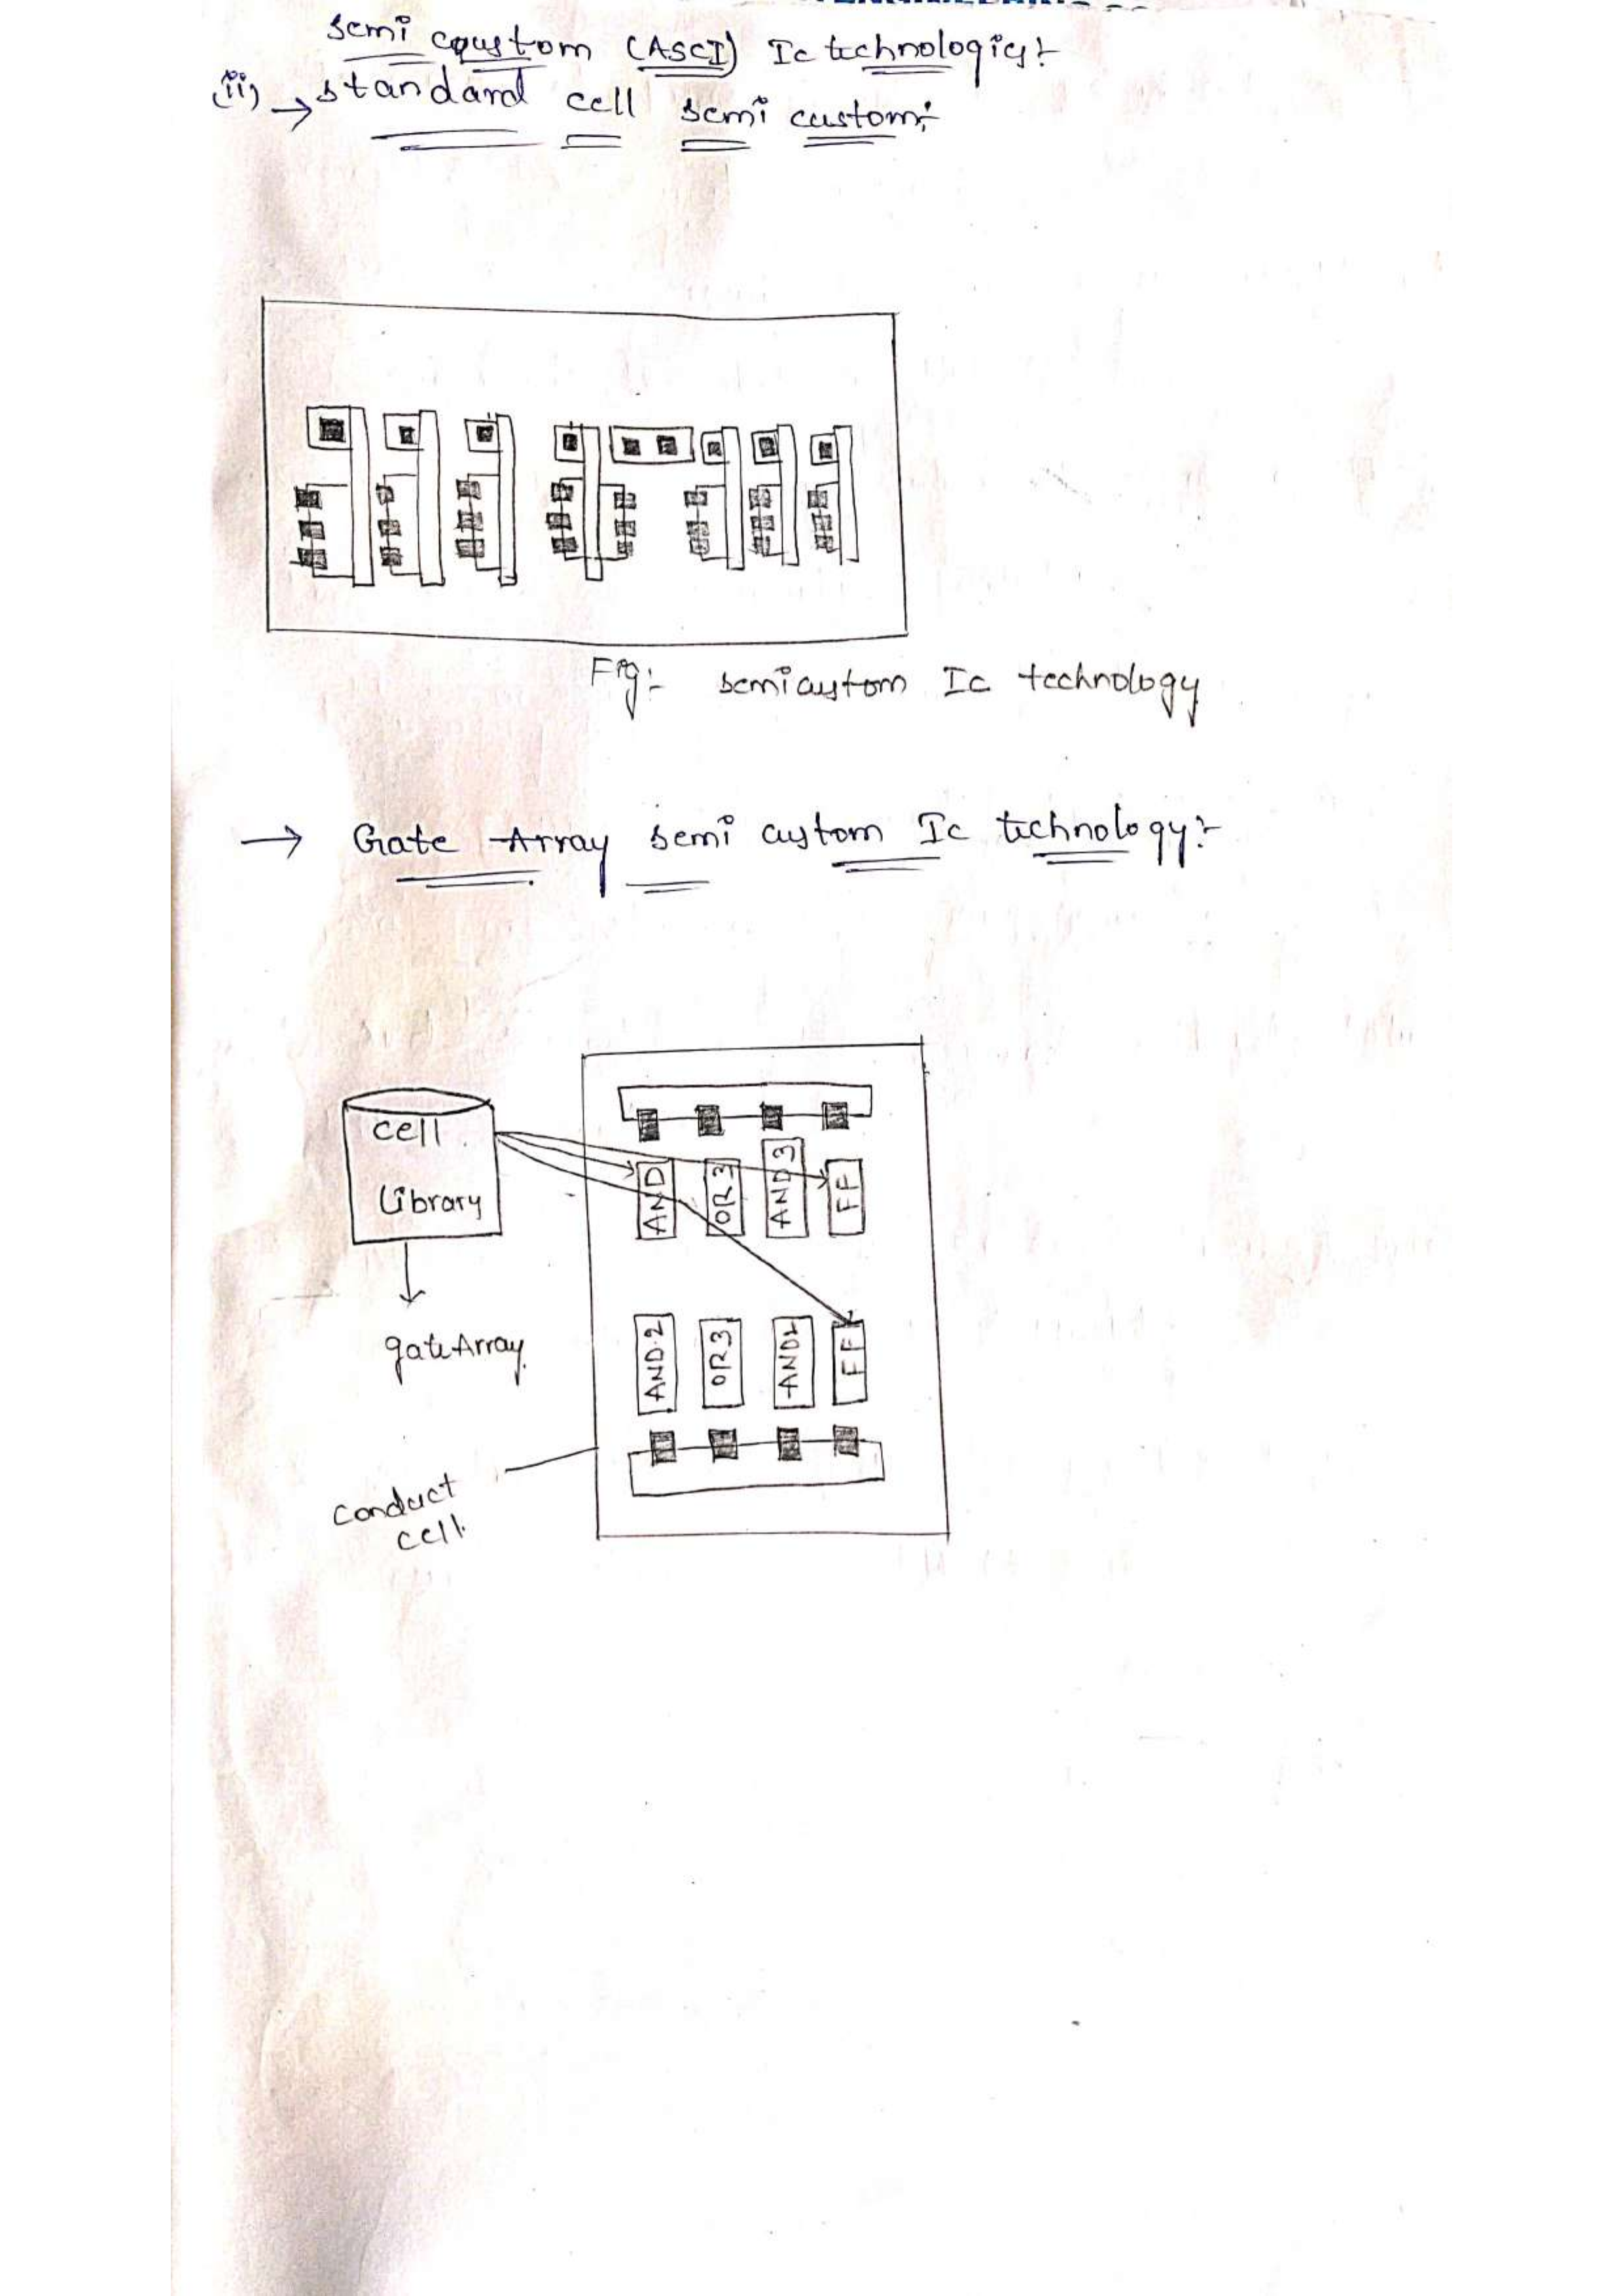 semi coustom (ASCI) Ic technologies:-
(ii) → standard cell semi custom:-
Fig:- semicustom Ic technology
→ Gate Array semi custom Ic technology:-
cell
Library
AND
OR3
AND3
FF
gate Array
AND2
OR3
AND2
FF
Conduct
cell